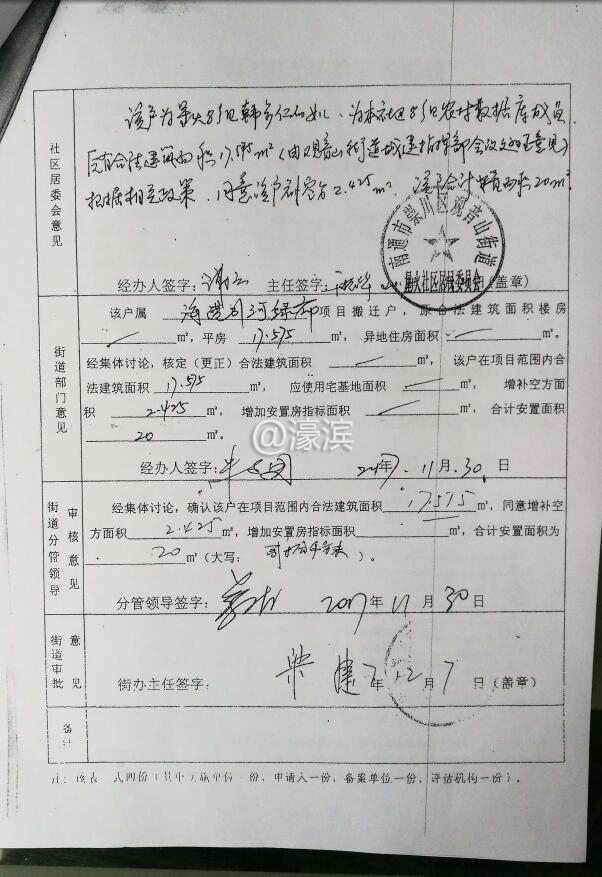 社区居委会意见
该户为
为本社区
农村数据库成员
合法建筑面积17.575m²（由观音山街道城建指挥部会议处理意见）
根据相关政策，同意该户补空方2.425m²，
合计
面积20m²
南通市崇川区观音山街道
社区居民委员会
经办人签字： 主任签字： （盖章）
街道部门意见
该户属 项目搬迁户，原合法建筑面积楼房
m²，平房 17.575 m²，异地住房面积 m²
经集体讨论，核定（更正）合法建筑面积 m²，该户在项目范围内合
法建筑面积 17.575 m²，应使用宅基地面积 m²，增补空方面
积 2.425 m²，增加安置房指标面积 m²，合计安置面积
20 m²。
@濠滨
经办人签字： 2017年11月30日
街道分管领导审核意见
经集体讨论，确认该户在项目范围内合法建筑面积 17.575 m²，同意增补空
方面积 2.425 m²，增加安置房指标面积 m²，合计安置面积为
20 m²（大写： ）。
分管领导签字： 2017年11月30日
街道审批意见
街办主任签字： 年12月7日（盖章）
备注
注：该表一式四份（其中实施单位一份、申请人一份，备案单位一份，评估机构一份）。